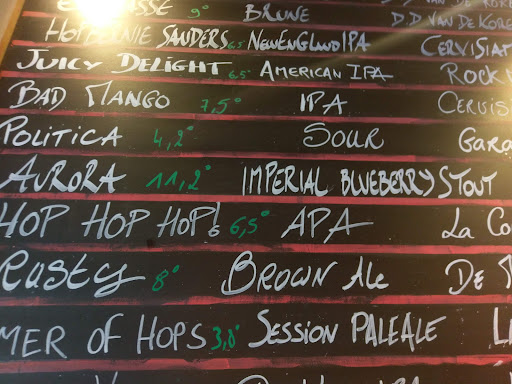 9° BRUNE D D VAN DE KORE
HOPBERNIE SANDERS 6.5 NEW ENGLAND IPA CERVISIA
JUICY DELIGHT 6.5° AMERICAN IPA ROCK
BAD MANGO 7,5° IPA CERVISI
POLITICA 4,2° SOUR GARA
AURORA 11,2° IMPERIAL BLUEBERRY STOUT
HOP HOP HOP! 6,5° APA LA CO
RUSTY 8° BROWN ALE DE
MER OF HOPS 3,8° SESSION PALE ALE